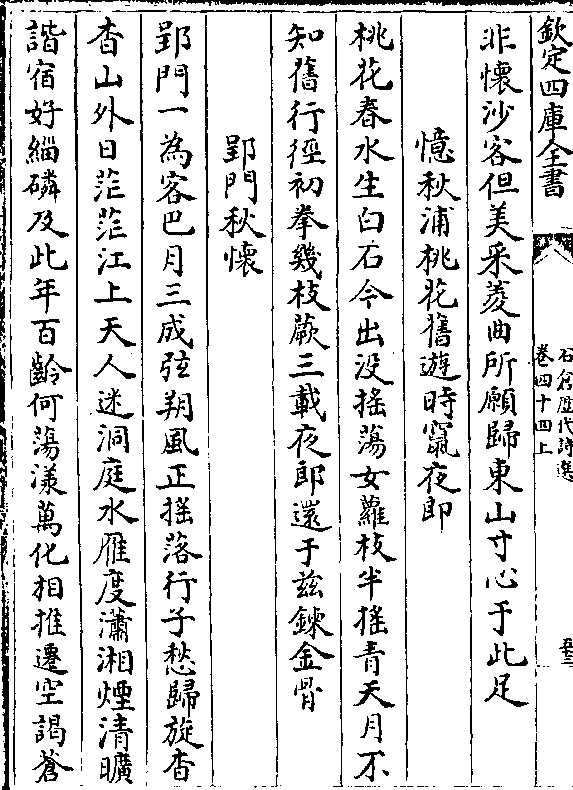 欽定四庫全書
石倉歷代詩選
卷四十四上
非懷沙客但美采菱曲所願歸東山寸心于此足
憶秋浦桃花舊遊時竄夜郎
桃花春水生白石今出沒搖蕩女蘿枝半搖青天月不
知舊行徑初拳幾枝蕨三載夜郎還于兹鍊金骨
郢門秋懷
郢門一為客巴月三成弦朔風正揺落行子愁歸旋杳
杳山外日茫茫江上天人迷洞庭水雁度瀟湘煙清曠
諧宿好緇磷及此年百齡何蕩漾萬化相推遷空謁蒼